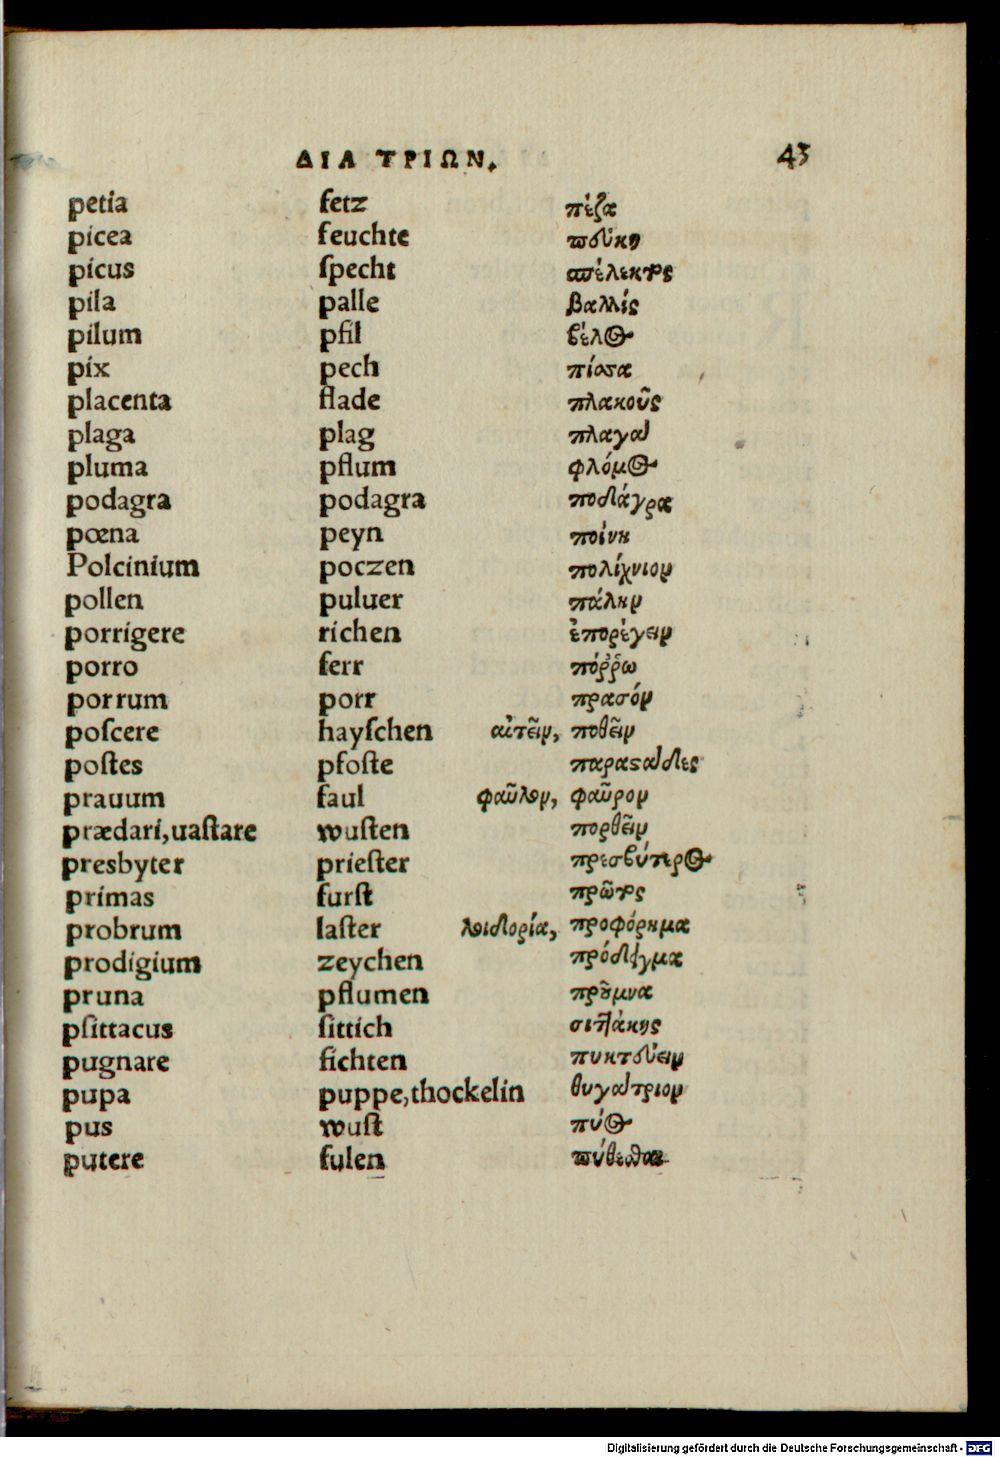 ΔΙΑ ΤΡΙΩΝ. 43
petia fetz πέζα
picea feuchte πεύκη
picus specht πέλεκυς
pila palle βαλλίς
pilum pfil βέλος
pix pech πίσσα
placenta flade πλακοῦς
plaga plag πλαγαὶ
pluma pflum φλόμος
podagra podagra ποδάγρα
pœna peyn ποίνη
Polcinium poczen πολίχνιον
pollen puluer πάλην
porrigere richen ἐπορέγειν
porro ferr πόῤῥω
porrum porr πρασόν
poſcere hayſchen αἰτεῖν, ποθεῖν
poſtes pfoſte παραςαίδες
prauum faul φαῦλον, φαῦρον
prædari, uaſtare wuſten πορθεῖν
presbyter prieſter πρεσβύτερος
primas furſt πρῶτος
probrum laſter λοιδορία, προφόρημα
prodigium zeychen πρόδειγμα
pruna pflumen προῦμνα
pſittacus ſittich σιττάκης
pugnare fichten πυκτεύειν
pupa puppe, thockelin θυγατριον
pus wuſt πύος
putere fulen πύθεσθαι
Digitalisierung gefördert durch die Deutsche Forschungsgemeinschaft - DFG